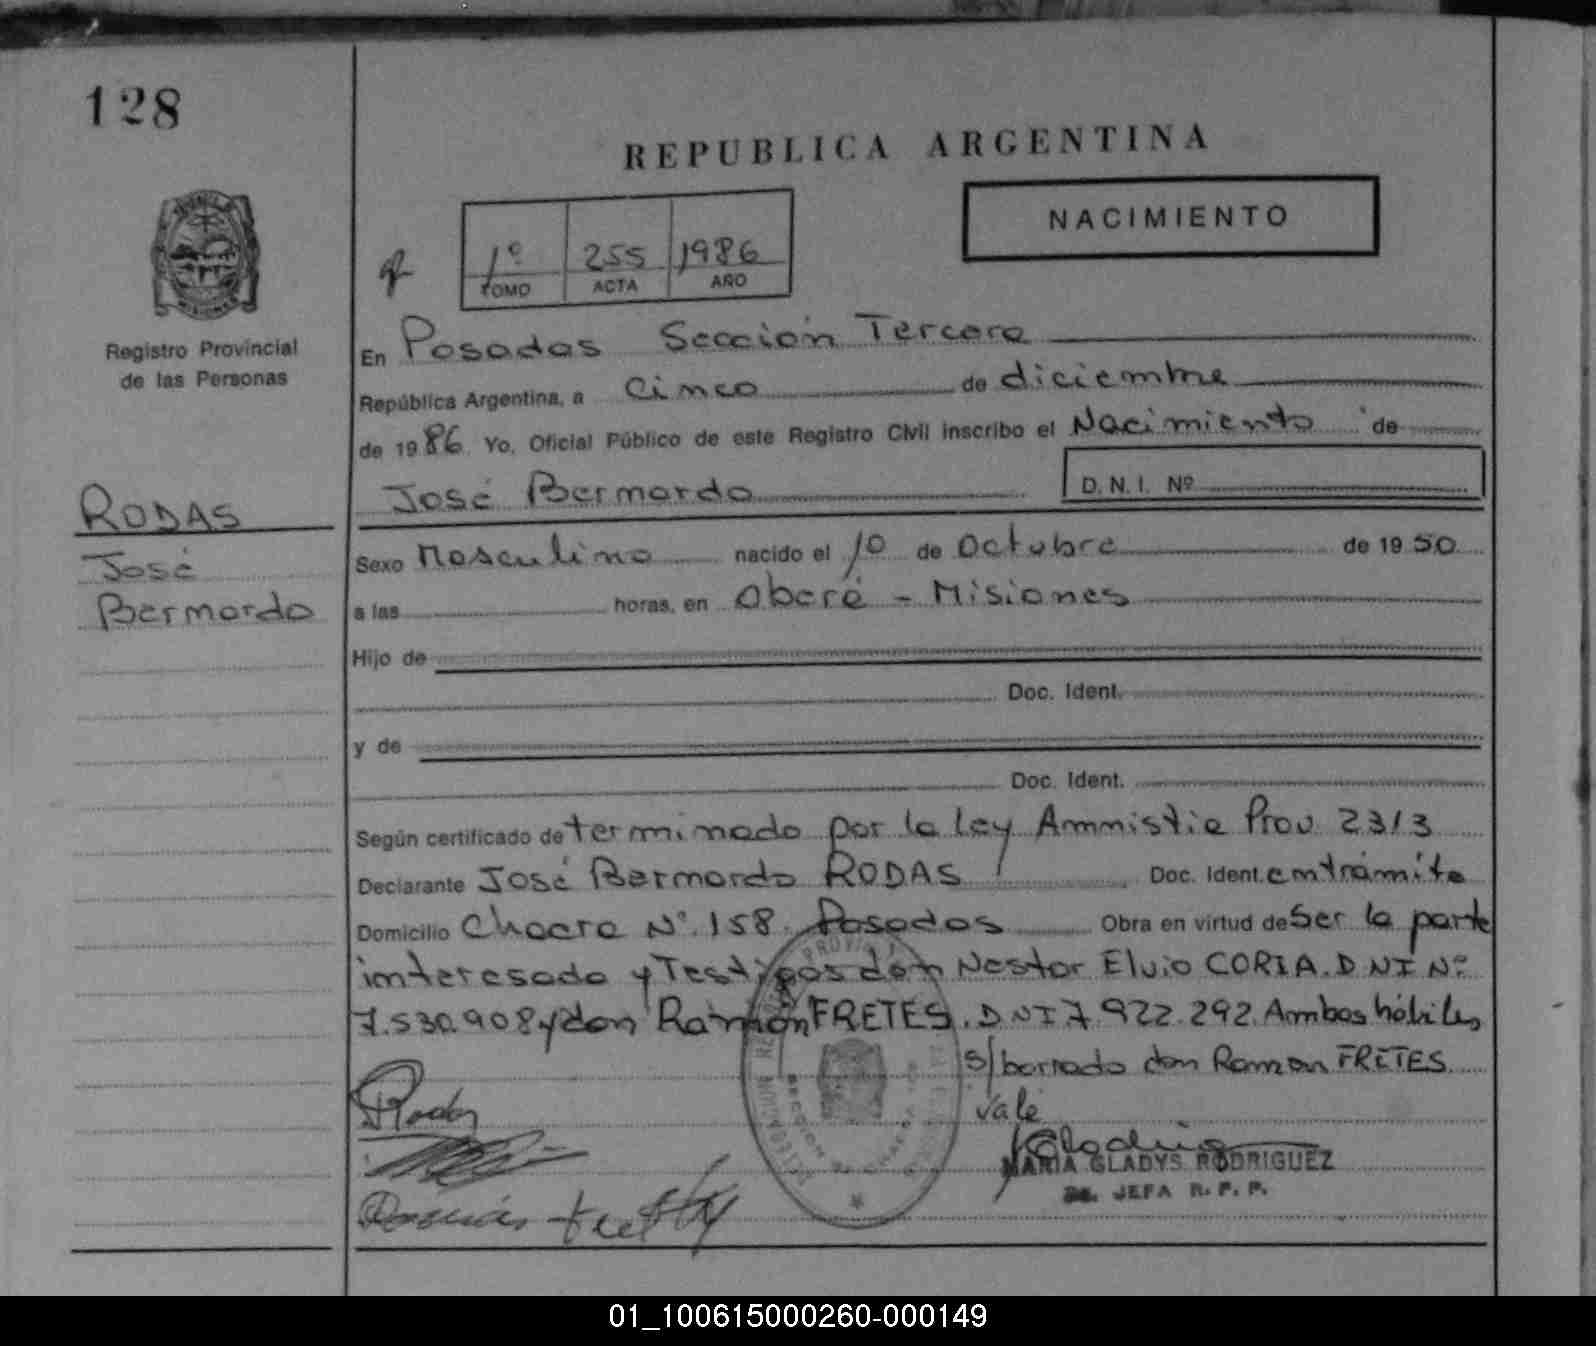 128
REPUBLICA ARGENTINA
NACIMIENTO
1º 255 1986
TOMO ACTA AÑO
Registro Provincial
de las Personas
MISIONES
En Posadas Sección Tercera
República Argentina, a cinco de diciembre
de 1986. Yo, Oficial Público de este Registro Civil inscribo el Nacimiento de
José Bernardo D.N.I. Nº
RODAS
José
Bernardo
Sexo Masculino nacido el 10 de Octubre de 1950
a las horas, en Oberá - Misiones
Hijo de
Doc. Ident.
y de
Doc. Ident.
Según certificado de terminado por la Ley Amnistia Prov. 2313
Declarante José Bernardo RODAS Doc. Ident. en trámite
Domicilio Chacra Nº 158. Posadas Obra en virtud de Ser la parte
interesada y Testigos don Nestor Elvio CORIA. DNI Nº
7.530.908 y don Ramón FRETES. DNI 7.922.292. Ambos hábiles
s/borrado don Ramon FRETES.
Vale
Rodas
MARIA GLADYS RODRIGUEZ
JEFA R. P. P.
01_100615000260-000149